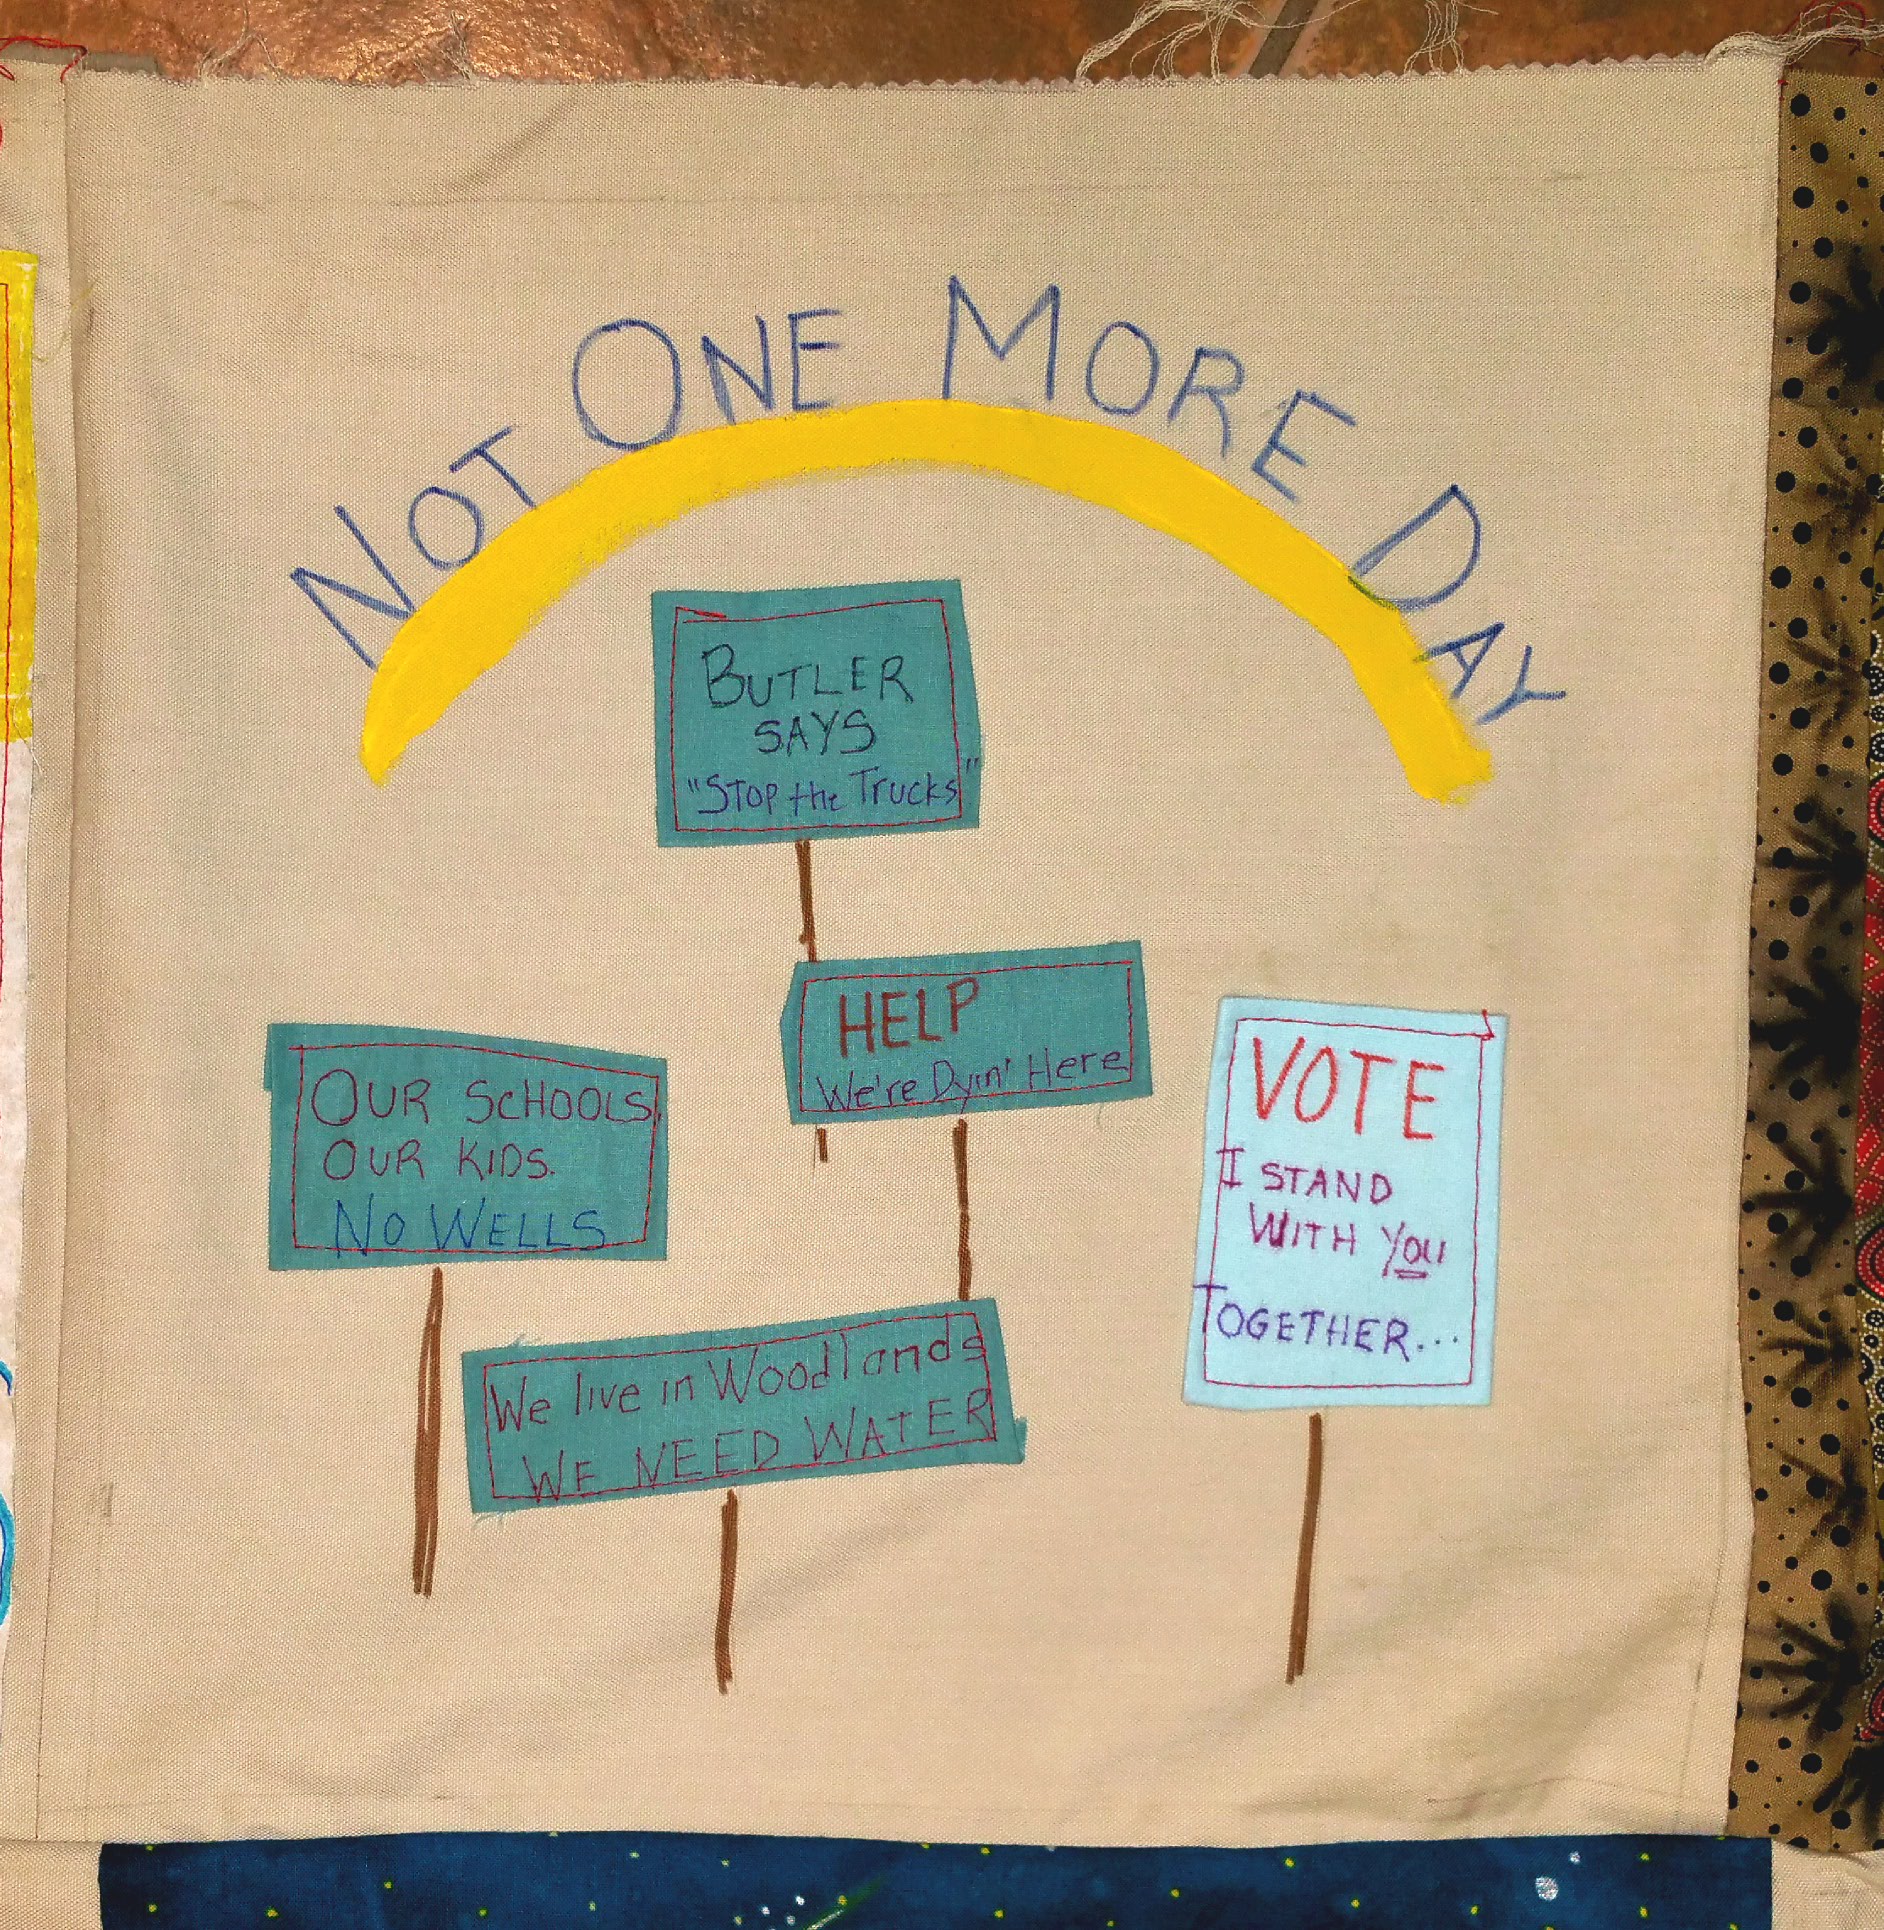 NOT ONE MORE DAY
BUTLER
SAYS
"STOP the Trucks"
HELP
We're Dyin' Here
OUR SCHOOLS,
OUR KIDS.
NO WELLS
VOTE
I STAND
WITH YOU
TOGETHER...
We live in Woodlands
WE NEED WATER